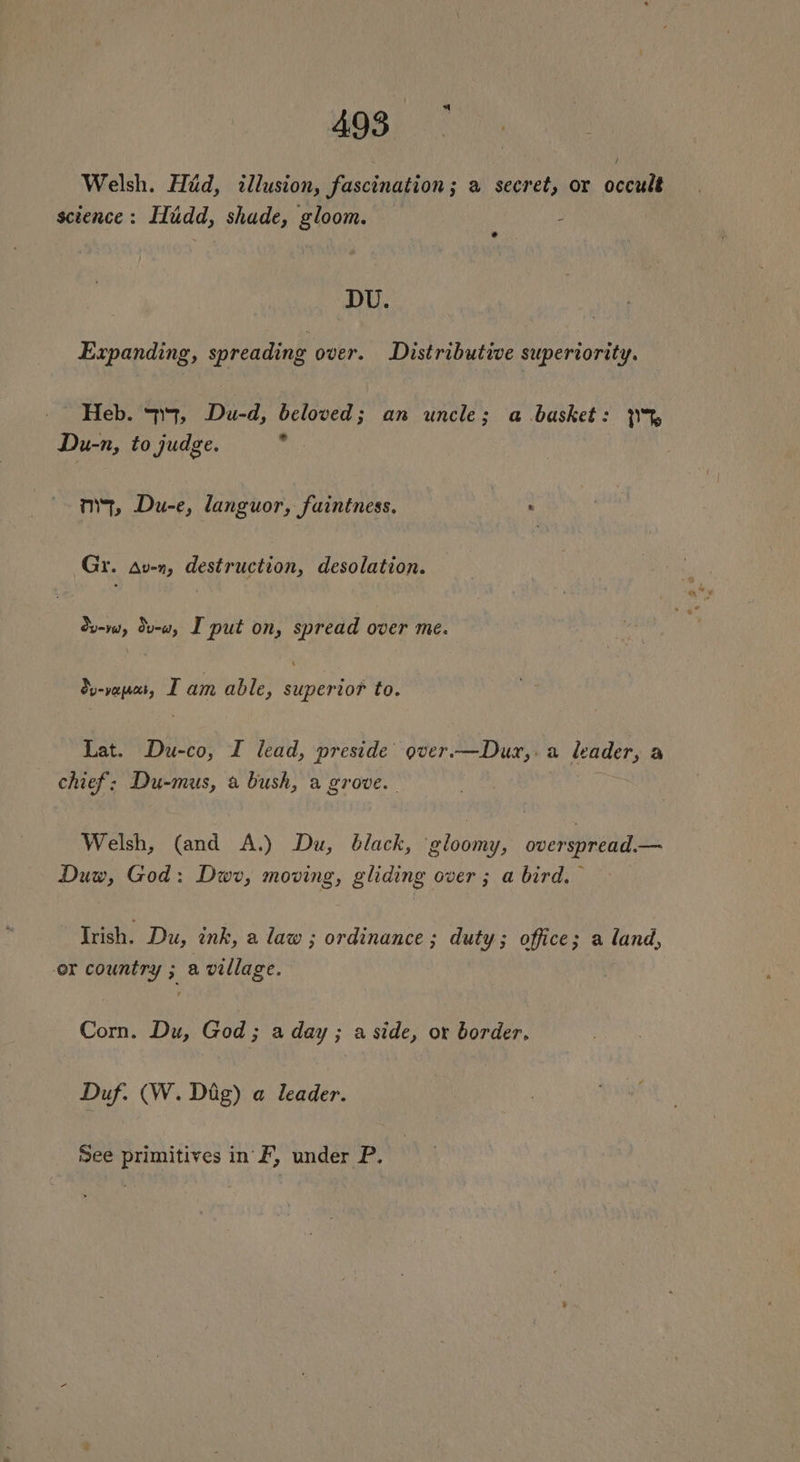 493
Welsh. Húd, illusion, fascination; a secret, or occult
science: Húdd, shade, gloom.
DU.
Expanding, spreading over. Distributive superiority.
Heb. דוד, Du-d, beloved; an uncle; a basket: דון,
Du-n, to judge.
דוה, Du-e, languor, faintness.
Gr. Δυ-η, destruction, desolation.
δυ-νω, δυ-ω, I put on, spread over me.
δυ-ναμαι, I am able, superior to.
Lat. Du-co, I lead, preside over.—Dux, a leader, a
chief: Du-mus, a bush, a grove.
Welsh, (and A.) Du, black, gloomy, overspread.—
Duw, God: Dwv, moving, gliding over; a bird.
Irish. Du, ink, a law; ordinance; duty; office; a land,
or country; a village.
Corn. Du, God; a day; a side, or border.
Duf. (W. Dûg) a leader.
See primitives in F, under P.